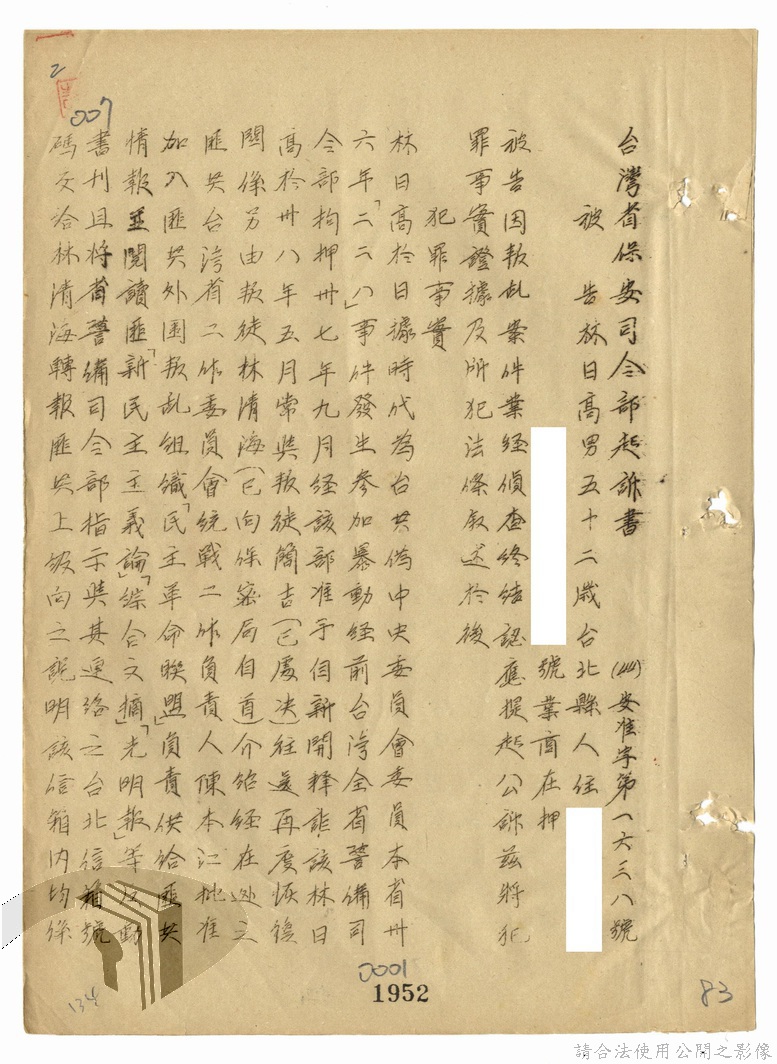 台灣省保安司令部起訴書
(44)安准字第一六三八號
被告林日高男五十二歲台北縣人住
號業商在押
被告因叛乱案件業経偵查終結認應提起公訴茲將犯
罪事實證據及所犯法條叙述於後
犯罪事實
林日高於日據時代為台共偽中央委員會委員本省卅
六年「二二八」事件發生參加暴動経前台灣全省警備司
令部拘押卅七年九月経該部准予自新開釋詎該林日
高於卅八年五月常與叛徒簡吉(已處决)往還再度恢復
関係另由叛徒林清海(已向保密局自首)介紹経在逃之
匪共台湾省工作委員會統戰工作負責人陳本江批准
加入匪共外圍叛乱組織「民主革命聯盟」負責供給匪共
情報並閱讀匪「新民主主義論」「綜合文摘」「光明報」等反動
書刊且將省警備司令部指示與其連絡之台北信箱號
碼交洽林清海轉報匪共上級向之説明該信箱内均係
2
007
0001
1952
134
83
請合法使用公開之影像